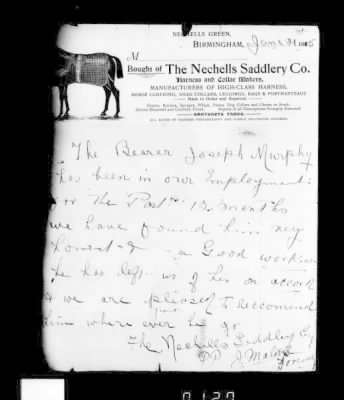 NECHELLS GREEN,
BIRMINGHAM, June 21st 1885
M
Bought of The Nechells Saddlery Co.
Harness and Collar Makers,
MANUFACTURERS OF HIGH-CLASS HARNESS,
HORSE CLOTHING, HEAD COLLARS, LEGGINGS, BAGS & PORTMANTEAUS
Made to Order and Repaired.
The Bearer Joseph Murphy
has been in our Employment
for The Past 12 months
we have found him very
honest & a Good workman
he has left us of his on accord
& we are pleased to reccomend
him where ever he go
The Nechells Saddlery Co
PP J. Malone
Foreman
0127